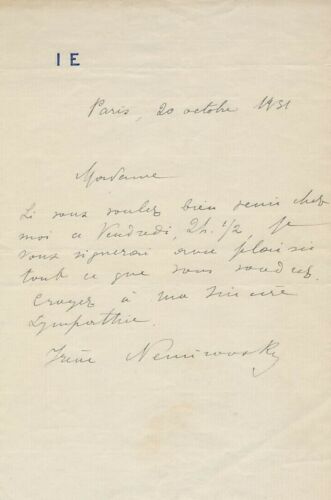 I E
Paris, 20 octobre 1931
Madame
Si vous voulez bien venir chez
moi ce Vendredi, 2h. 1/2, je
vous signerai avec plaisir
tout ce que vous voudrez.
Croyez à ma sincère
sympathie.
Irène Nemirovsky